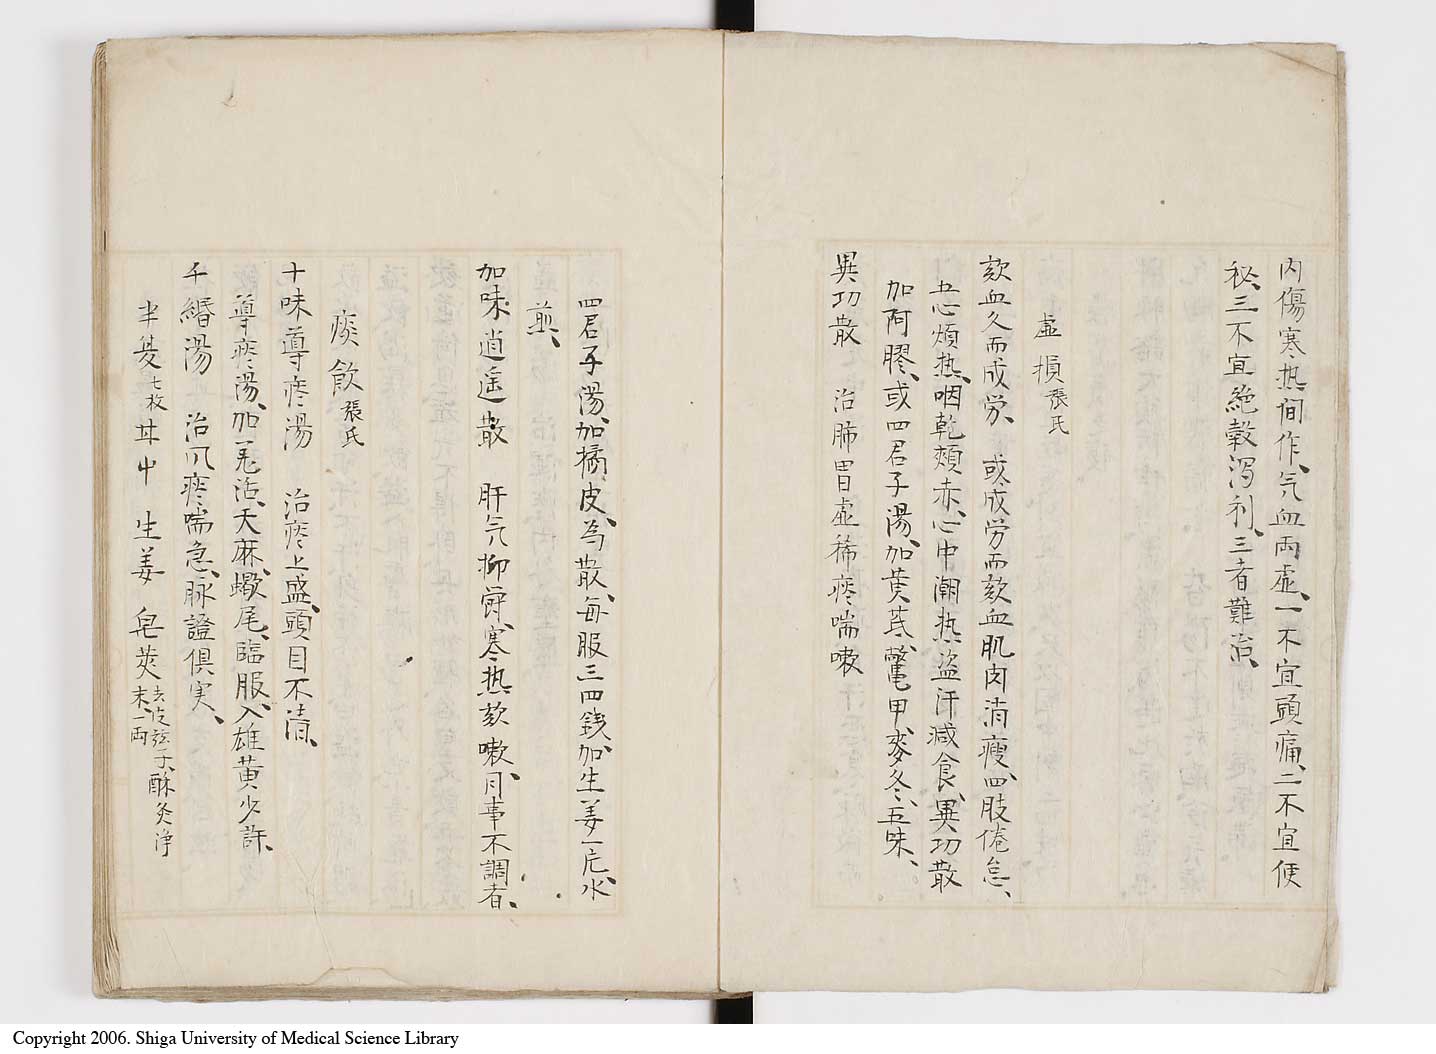 内傷寒热间作、气血両虚、一不宜頭痛、二不宜便
秘、三不宜絶穀瀉利、三者難治、
虚損張氏
欬血久而成労、或成労而欬血肌肉消瘦、四肢倦怠、
五心煩热、咽乾頬赤、心中潮热盗汗减食、異功散
加阿膠、或四君子湯、加黄芪、鼈甲、麥冬、五味、
異功散　治肺胃虚稀痰喘嗽
四君子湯、加橘皮、為散、每服三四銭、加生姜一片、水
煎、
加味逍遥散　肝气抑鬱、寒热欬嗽、月事不調者、
痰飲張氏
十味導痰湯　治痰上盛、頭目不清、
導痰湯、加羌活、天麻、蠍尾、臨服、入雄黄少許、
千緡湯　治风痰喘急、脉證俱実、
半夏七枚 甘中 生姜 皂莢去皮弦子、酥炙浄
末、一両
Copyright 2006. Shiga University of Medical Science Library